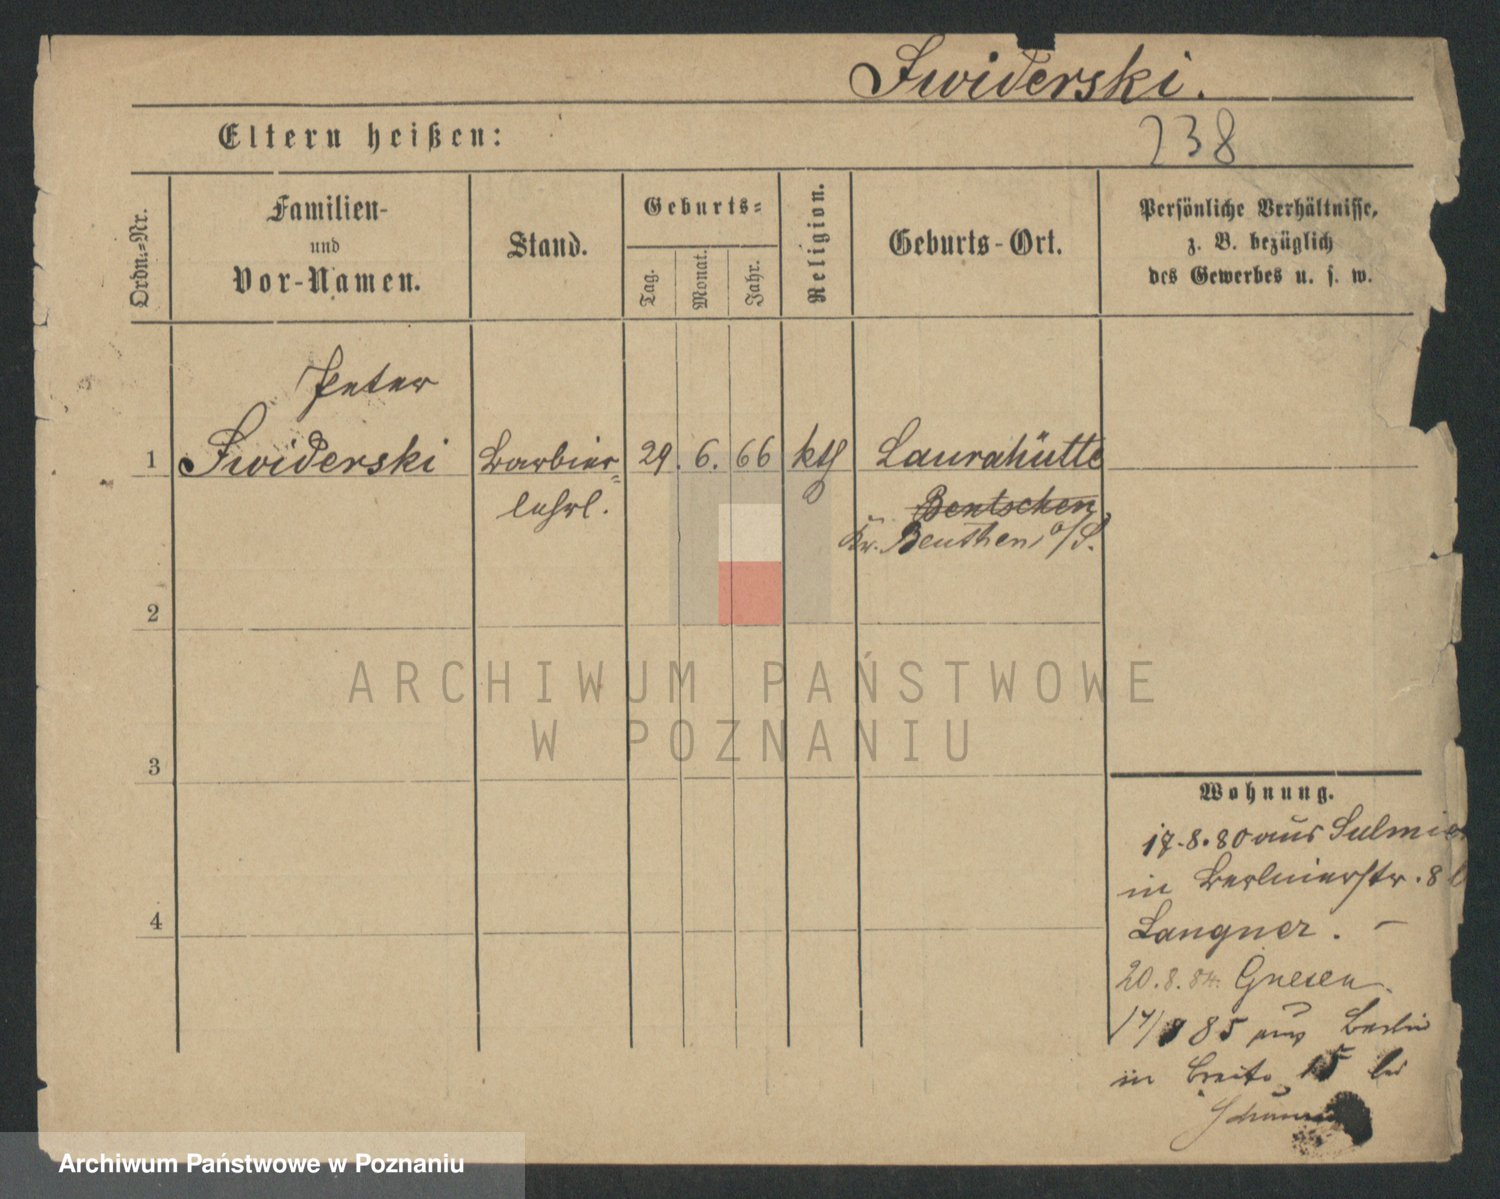 Swiderski.
Eltern heißen:
238
Ordn.-Nr.
Familien-
und
Vor-Namen.
Stand.
Geburts-
Tag.
Monat.
Jahr.
Religion.
Geburts-Ort.
Persönliche Verhältnisse,
z. B. bezüglich
des Gewerbes u. s. w.
Peter
1 Swiderski Barbier- 29. 6. 66 kth Laurahütte
lehrl. Bentschen
Kr. Beuthen o/S.
2
ARCHIWUM PAŃSTWOWE
W POZNANIU
3
Wohnung.
17.8.80 aus
in Berlinerstr. 8
4
Langner. –
20.8.84. Gnesen.
85 aus Berlin
in Breite 15 bei
Archiwum Państwowe w Poznaniu